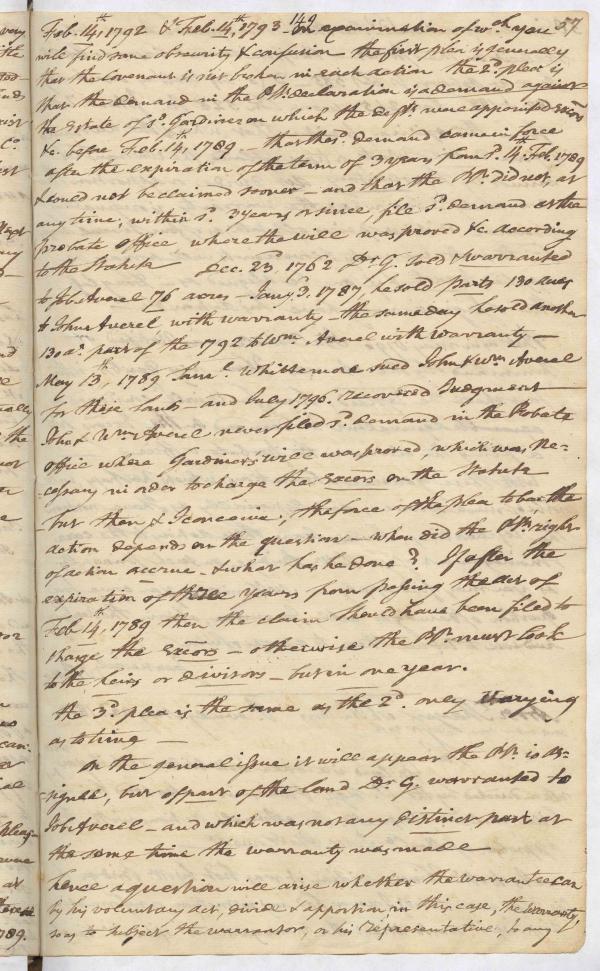 149
57
Feb. 14,th 1792 & Feb. 14,th 1793 On examination of wch you
will find some obscurity & confusion the first plea is generally
that the Covenant is not broken in each action the 2d plea is
that the demand in the Pl's declaration is a demand against
the Estate of sd. Gardiner on which the defts were appointed Excors
&c. before Feb. 14,th 1789 – that the sd. demand came in force
after the expiration of the term of 3 years from sd. 14th Feb. 1789
& could not be claimed sooner – and that the Pl. did not, at
any time, within sd. 3 years, or since, file sd. demand at the
probate office, where the will was proved &c. according
to the Statute Dec. 23d 1762 Dr. G. sold & warranted
to Job Averel 76 acres – Jany 3d. 1787, he sold parts 130 acres
to John Averel, with warranty – the same day he sold another
130 as. part of the 1792 to Wm. Averel with warranty –
May 13,th 1789 Saml. Whittemore sued John & Wm Averel
for these lands – and July 1796. recovered Judgment
John & Wm Averel never filed sd. demand in the Probate
office where Gardiner's will was proved, which was Ne-
-cessary in order to charge the Excors on the Statute
but then as I conceive, the force of the plea to bar the
action depends on the question – when did the Pl's right
of action accrue – & what has he done? If after the
expiration of three years from passing the act of
Feb. 14,th 1789 then the claim should have been filed to
charge the Excors – otherwise the Pl. must look
to the heirs or devisors – but in one year.
the 3d. plea is the same as the 2d. only varying
as to time –
On the general issue it will appear the Pl. is as-
-signee, but of part of the land Dr. G. warranted to
Job Averel – and which was not any distinct part at
the same time the warranty was made
hence a question will arise whether the warrantee can
by his voluntary act, divide & apportion, in this case, the warranty,
so as to subject the warrantor, or his representative, to any